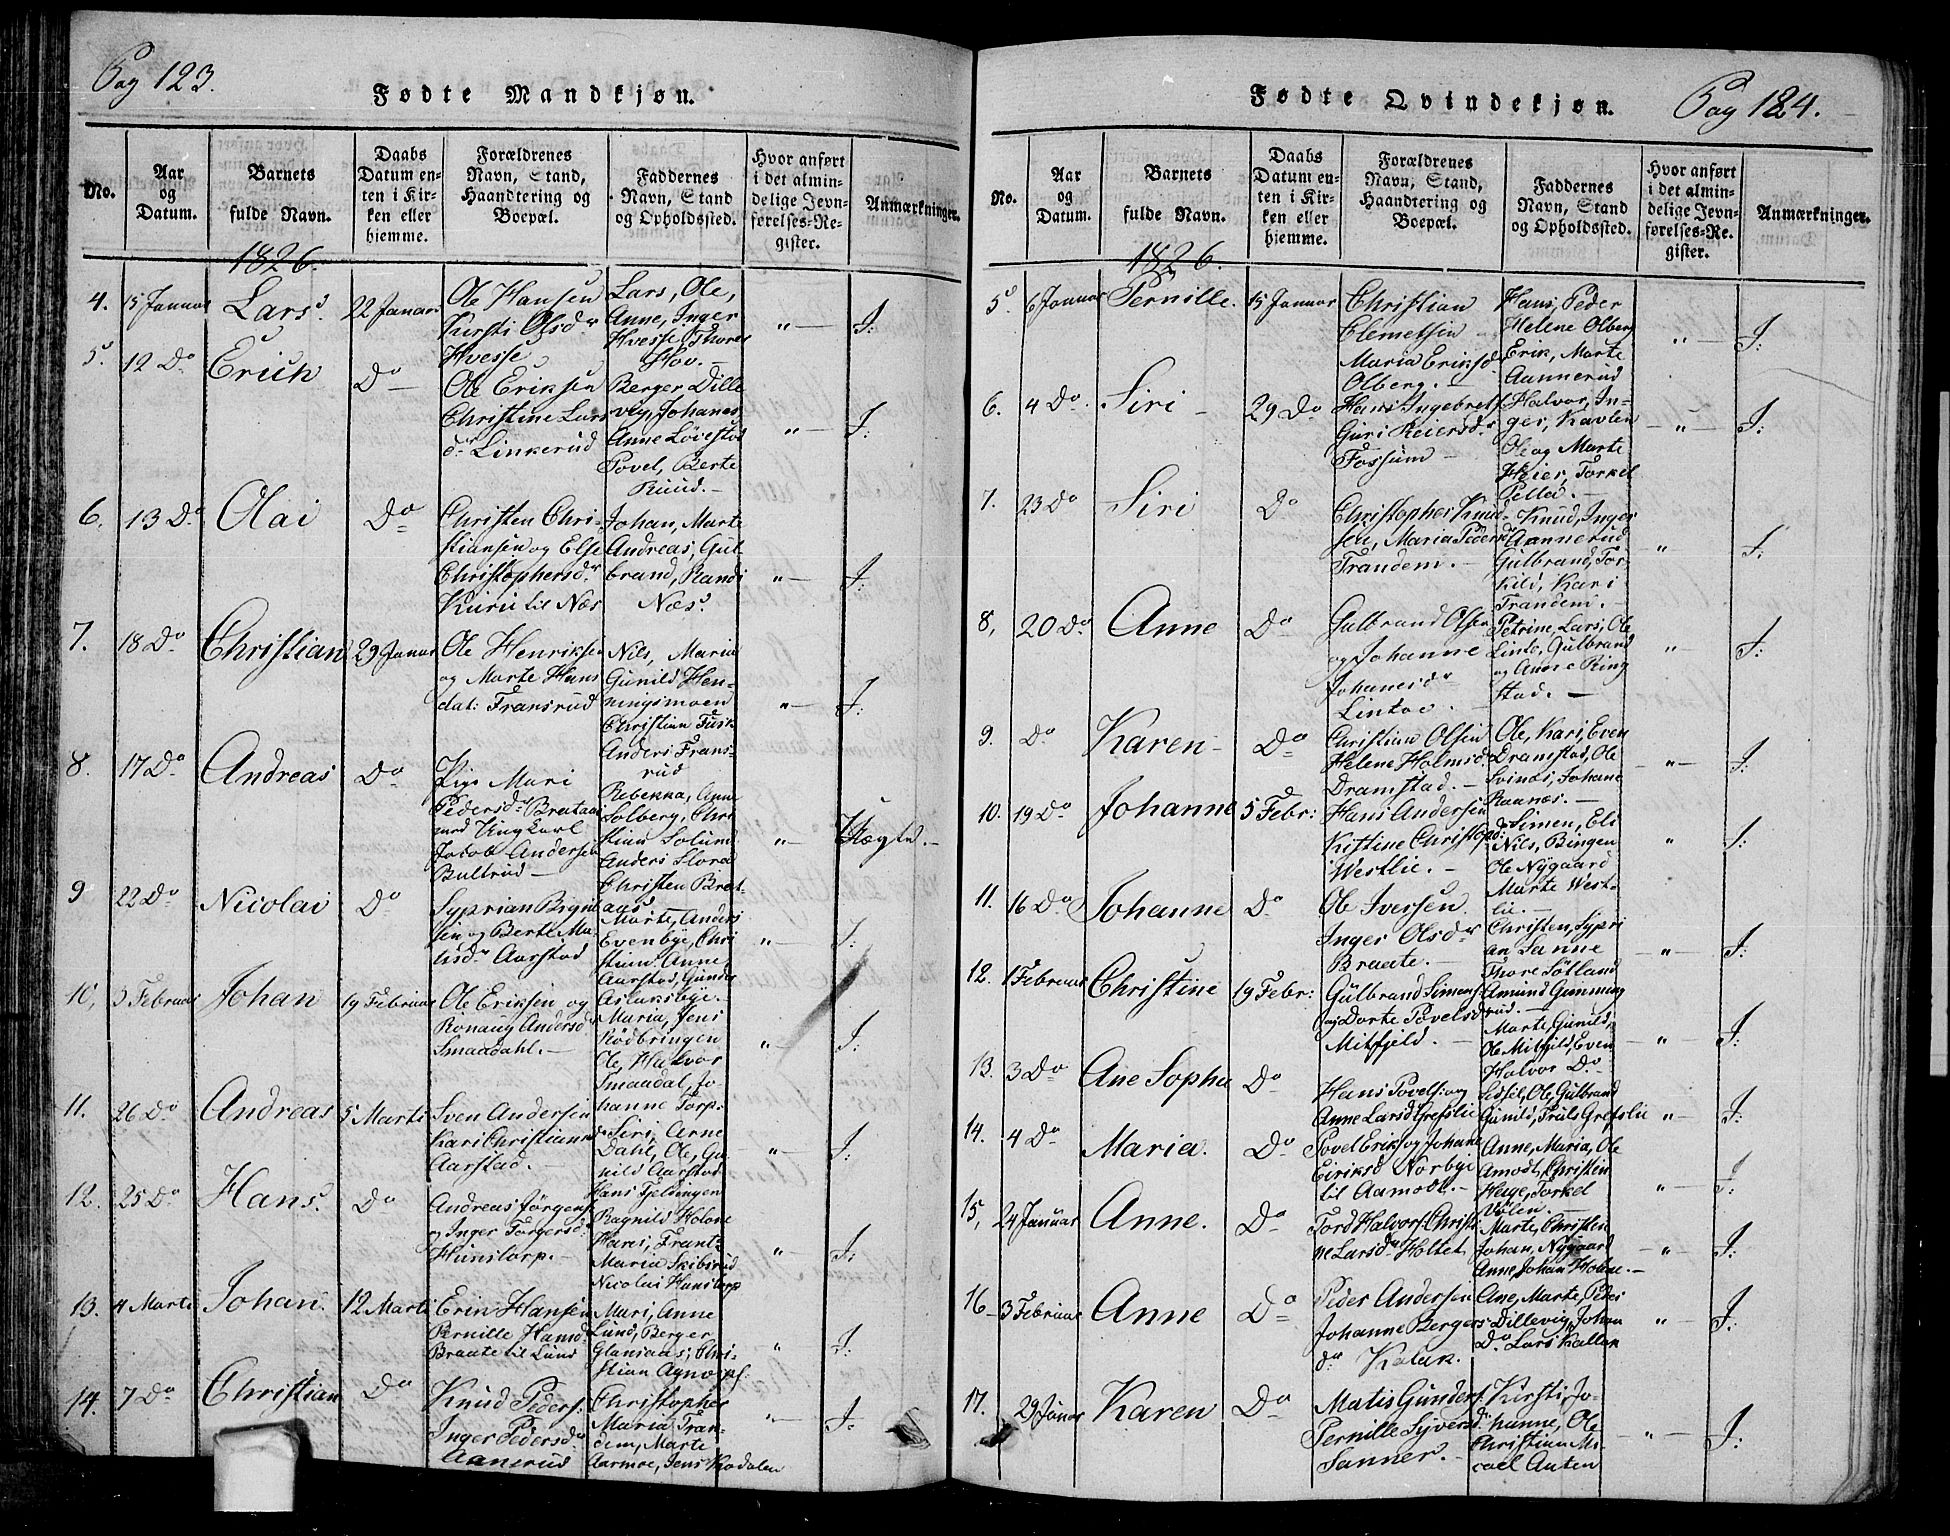 Pag 123.
Fødte Mandkjøn.
No.
Aar
og
Datum.
Barnets
fulde Navn.
Daabs
Datum en-
ten i Kir-
ken eller
hjemme.
Forældrenes
Navn, Stand,
Haandtering og
Boepæl.
Faddernes
Navn, Stand
og Opholdssted.
Hvor anført
i det almin-
delige Jevn-
førelses-Re-
gister.
Anmærkninger.
1826.
4. 15 Januar Lars. 22 Januar
Ole Hansen
Kirsti Olsdr
Hvesse
Lars, Ole,
Anne, Inger
Hvesse, Thores
Hov.
"— I:
5. 12 Do Erich Do
Ole Eriksen
Christine Lars
dr Linkerud
Berger Dille
vig, Johanes
Anne Løvestad
Povel, Berte
Ruud.
"— I:
6. 13 Do Olai Do
Christen Chri-
stiansen og Else
Christophersdr
til Næs
Johan, Marte
Andreas, Gul
brand, Randi
Næs.
"— I:
7. 18 Do Christian 29 Januar
Ole Henriksen
og Marte Hans
dat: Fransrud
Nils, Maria
Gunild Hen-
ningsmoen
Christian
Anders Frans-
rud
"— I:
8. 17 Do Andreas Do
Pige Mari
Pedersdr Braataas
med Ungkarl
Jacob Andersen
Bultrud
Rebekka, Anne
Solberg, Chri
stian Solum
Anders Slora
Christen Brat-
aas
" Uægte.
9 22 Do Nicolai Do
Syprian
sen og Berte Ma
tisdr Aarstad
Marte, Anders
Evenbye, Chri
stian, Anne,
Aarstad, Gunder
Aslaksbye.
"— I:
10, 5 Februar Johan 19 Februar
Ole Eriksen og
Rønaug Andersdr
Smaadahl.
Maria, Jens
Rødbringen
Ole, Halvor
Smaadal, Jo
hanne Torp.
"— I:
11. 26 Do Andreas 5 Marti
Sven Andersen
Kari Christians
Aarstad.
dr Siri, Arne
Dahl, Ole, Gu
nild Aarstad
"— I:
12. 25 Do Hans. Do
Andreas Jørgens
og Inger Torgersdr
Hunstorp.
Hans Fjelsingen
Ragnild Holøne
Hans, Frantz
Maria Skibsrud
Nicolai Hunstorp
" I:
13. 4 Marti Johan. 12 Marti
Erik Hansen
Pernille Hansd
Braate til Lund
Mari, Anne
Lund, Berger
Glansaas, Chri-
stian
" I:
14. 7 Do Christian Do
Knud Peders.
Inger Pedersdr
Aanerud
Christopher
Maria Tran-
dem, Marte
Aarmoe, Jens Kadalen
"— I:
Pag 124.
Fødte Qvindekjøn.
No.
Aar
og
Datum.
Barnets
fulde Navn.
Daabs
Datum en-
ten i Kir-
ken eller
hjemme.
Forældrenes
Navn, Stand,
Haandtering og
Boepæl.
Faddernes
Navn, Stand
og Opholdssted.
Hvor anført
i det almin-
delige Jevn-
førelses-Re-
gister.
Anmærkninger.
1826.
5. 6 Januar Pernille. 15 Januar
Christian
Clemetsen
Maria Eriksdr
Olberg.
Hans, Peder
Helene Olberg
Erik, Marte
Aannerud
"— I:
6. 4 Do Siri 29 Do
Hans Ingebrets
Guri Reiersdr
Fossum
Halvor, In-
ger, Kavlen
Ole og Marte
Heier, Torkel
Pellea.
—"— I:
7. 23 Do Siri Do
Christopher Knud-
sen, Maria Pedersdr
Trandem.
Knud, Inger
Aannerud
Gulbrand, Tor-
kild, Kari
Trandem.
" I:
8, 20 Do Anne Do
Gulbrand Olsen
og Johanne
Johanesdr
Lintoe.
Petrine, Lars, Ole
Linto, Gulbrand
og Anne Ring
stad.
"— I:
9. Do Karen Do
Christian Olsen
Helene Holmsdr
Dramstad.
Ole, Kari, Even
Dramstad, Ole
Svinds, Johane
Raanæs.
—"— I:
10. 19 Do Johanne 5 Febr:
Hans Andersen
Kistine Christopd:
Westlie.
Simen, Eli
Nils, Bingen
Ole Nygaard
Marte West-
lie.
" I:
11. 16 Do Johanne Do
Ole Iversen
Inger Olsdr
Braate.
Christen, Sypri
an Sanne
Thore Søtland
Amund Gunning
rud.
—"— I:
12. 1 Februar Christine 19 Febr:
Gulbrand Simens
og Dorte Povelsdr
Mitfjeld.
Marte, Gunild,
Ole Mitfjeld, Even
Halvor Do
—"— I:
13. 3 Do Ane Sophie Do
Hans Povels: og
Anne Larsd Grefslie
Sidsel, Ole, Gulbrand
Gunild, Truls Grefslie
"— I:
14. 4 Do Maria. Do
Povel Eriks og Johane
Eiriksd Norbye
til Aamodt.
Anne, Maria, Ole
Amodt, Christen
Hege, Torkel
Vølen.
"— I:
15, 24 Januar Anne. Do
Tord Halvors. Christi
ne Larsdr Holtet
Marte, Christen
Johan, Nygaard
Anne, Johan Holene.
—"— I:
16 3 Februar Anne Do
Peder Andersen
Johanne Bergers
dr Kalak.
Ane, Marte, Peder
Dillevig, Johan
Do Lars Kallak
"— I:
17. 29 Januar Karen Do
Matis Gunders.
Pernille Syversdr
Sanner.
Kirsti, Jo-
hanne, Ole
Christian Mi
cael Anten
—"— I: